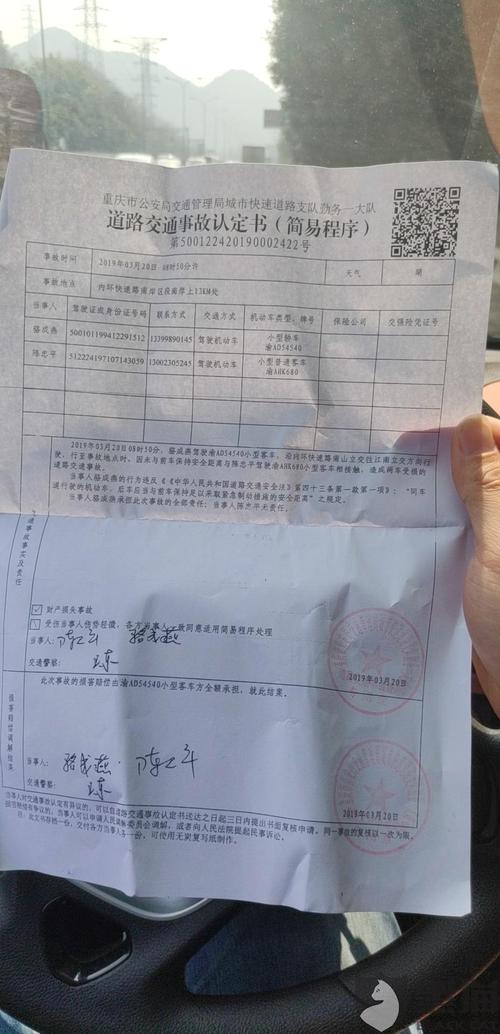 重庆市公安局交通管理局城市快速道路支队勤务一大队
道路交通事故认定书（简易程序）
第500122420190002422号
事故时间 2019年03月20日 08时50分许 天气 晴
事故地点 内环快速路南岸区段南岸上13KM处
当事人 驾驶证或身份证号码 联系方式 交通方式 机动车类型、牌号 保险公司 交强险凭证号
骆成燕 500101199412291512 13399890145 驾驶机动车 小型轿车
渝AD54540
陈忠平 512224197107143059 13002305245 驾驶机动车 小型普通客车
渝AHK680
2019年03月20日08时50分，骆成燕驾驶渝AD54540小型客车，沿内环快速路南山立交往江南立交方向行
驶，行至事故地点时，因未与前车保持安全距离与陈忠平驾驶渝AHK680小型客车相接触，造成两车受损的
道路交通事故。
当事人骆成燕的行为违反《《中华人民共和国道路交通安全法》第四十三条第一款第一项》："同车
道行驶的机动车，后车应当与前车保持足以采取紧急制动措施的安全距离"之规定。
当事人骆成燕承担此次事故的全部责任；当事人陈忠平无责任。
通事故事实及责任
财产损失事故
受伤当事人伤势轻微，各方当事人一致同意适用简易程序处理
当事人： 骆成燕
交通警察：
2019年03月20日
此次事故的损害赔偿由渝AD54540小型客车方全额承担，就此结案。
损害赔偿调解结果
当事人： 骆成燕
交通警察：
2019年03月20日
当事人对交通事故认定有异议的，可以自道路交通事故认定书送达之日起三日内提出书面复核申请。同一事故的复核以一次为限。
损害赔偿有争议的，当事人可以申请人民调解委员会调解，或者向人民法院提起民事诉讼。
注：此文书存档一份，交付各方当事人各一份，可使用无炭复写纸制作。